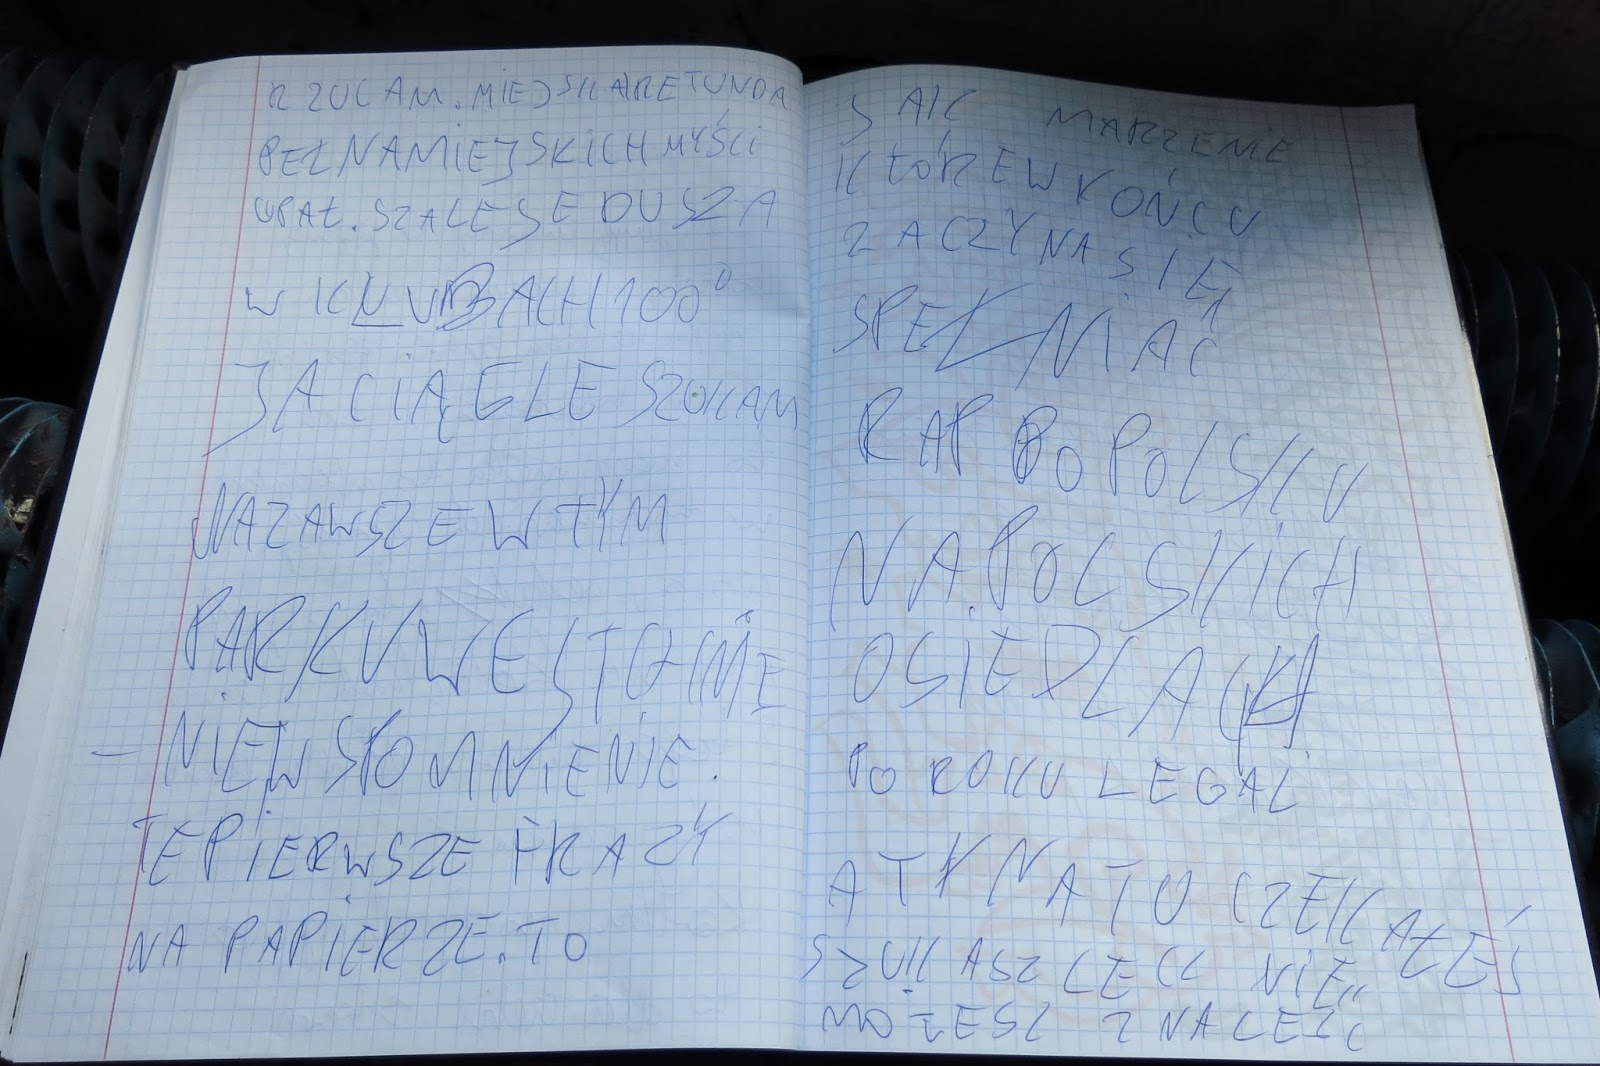 RZUCAM. MIEJSKARETUNDA
PEŁNAMIEJSKICH MYŚLI
UPAŁ. SZALEJE DUSZA
W KLUBACH 100°
JA CIĄGLE SZUKAM
NAZAWSZE W TYM
PARKU WESTCHNIE
- NIEWSPOMNIENIE.
TE PIERWSZE FRAZY
NA PAPIERZE. TO
JAK MARZENIE
KTÓRE W KOŃCU
ZACZYNA SIĘ
SPEŁNIAĆ
RAP PO POLSKU
NA POLSKICH
OSIEDLACH
PO ROKU LEGAL
A TY NA TO CZEKAŁEŚ
SZUKASZ LECZ NIE
MOŻESZ ZNALEŹĆ